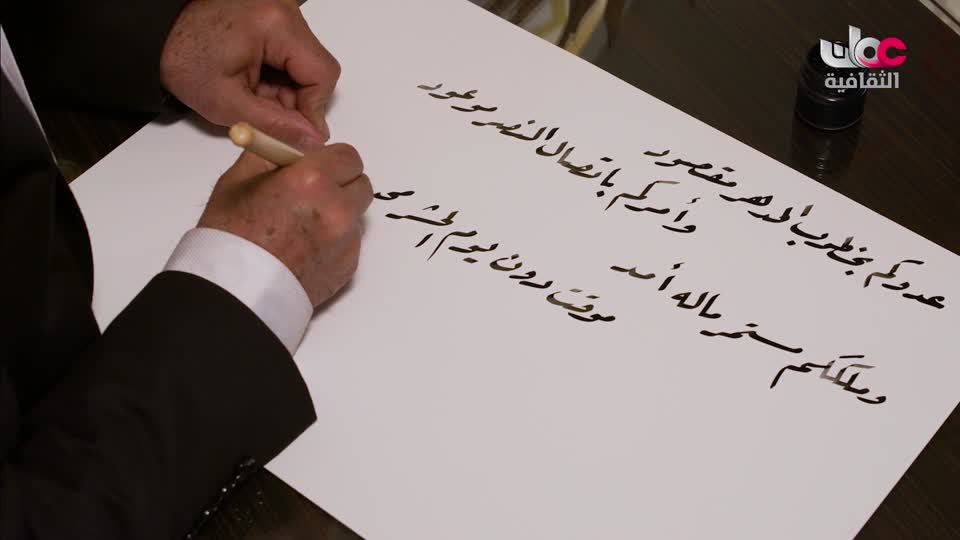 عدوكم بخطوب الدهر مقصود
وأمركم باتصال النصر موعود
وملككم مستمر ماله أمد
موقت دون يوم الحشر مح
عمان
الثقافية